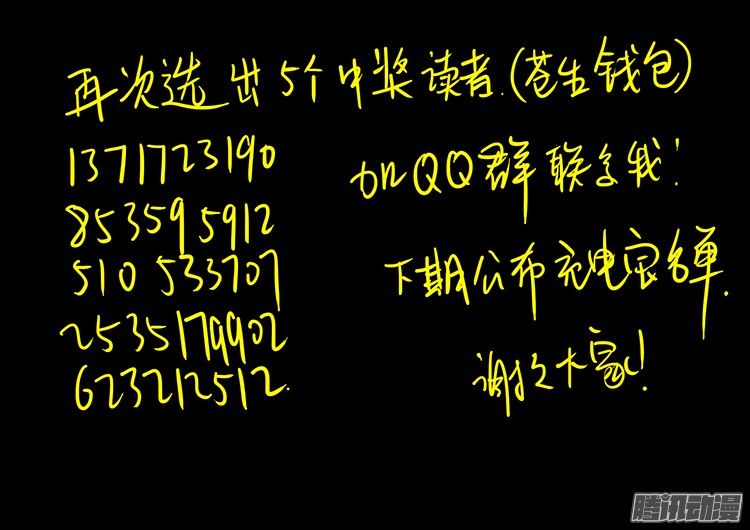 再次选出5个中奖读者.(苍生钱包)
1371723190
853595912
510533707
2535179902
623212512.
加QQ群联系我!
下期公布充电宝名单.
谢谢大家!
腾讯动漫